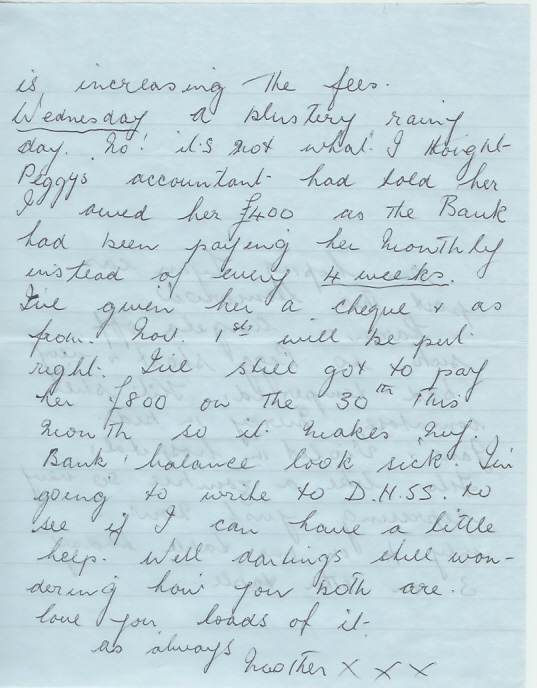 is increasing the fees.
Wednesday A blustery rainy
day. No! it's not what I thoight
Peggys accountant had told her
I owed her £400 as the Bank
had been paying her monthly
instead of every 4 weeks.
I've given her a cheque & as
from Nov. 1st will be put
right. I've still got to pay
her £800 on the 30th this
month so it makes my
Bank balance look sick. I'm
going to write to D.H.S.S. to
see if I can have a little
help. Well darlings still won-
dering how you both are.
love you loads of it
as always
Mother X X X